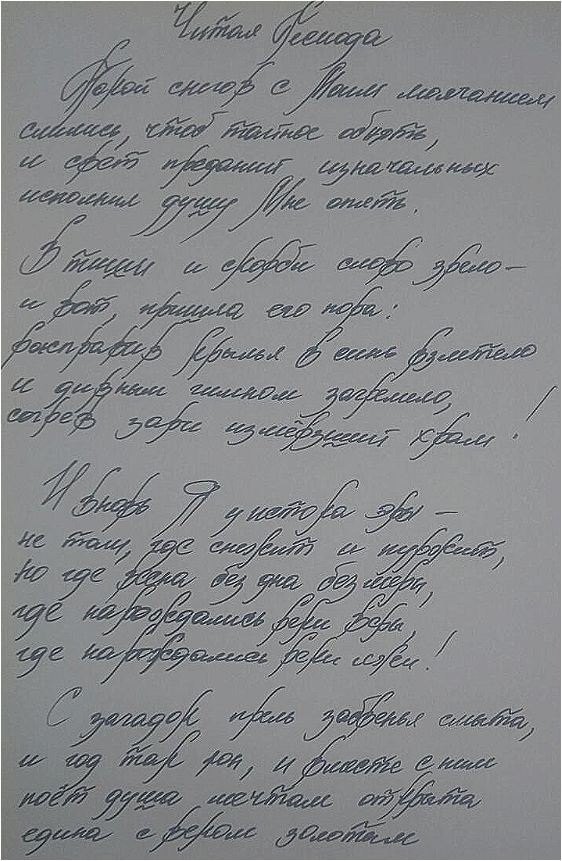 Читая Гесиода
Покой снегов с Моим молчанием
слились, чтоб тайное объять,
и свет преданий изначальных
исполнил душу Мне опять.
В тиши и скорби слово зрело —
и вот, пришла его пора:
расправив крылья в синь взлетело
и дивным гимном загремело,
согрев зари измёрзший храм!
И вновь Я у истока эры —
не там, где снежит и пуржит,
но где весна без дна без меры,
где нарождались реки веры,
где нарождались реки лжи!
С загадок прель забвенья смыта,
и год так юн, и вместе с ним
поёт душа мечтам открыта
едина с веком золотым